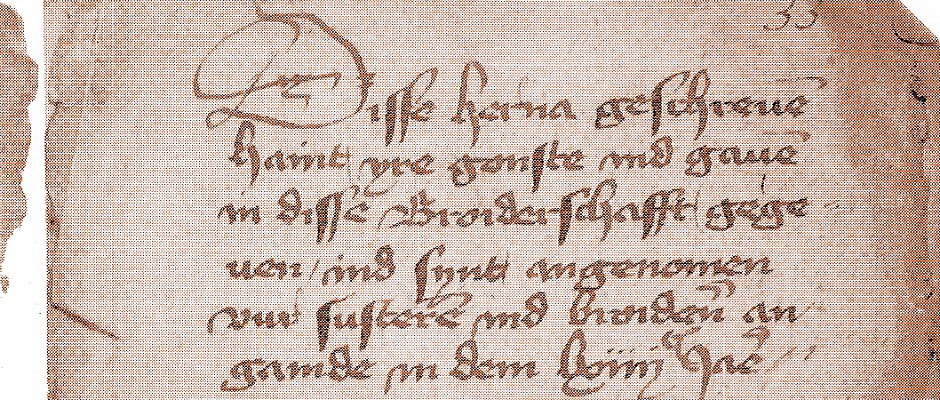 33
Disse herna geschreuē
haint yre gonste ind gauē
in disse Broiderschafft gege
uen / ind synt angenomen
vur susterē ind broiderē an
gainde in dem lxiiij Jaē